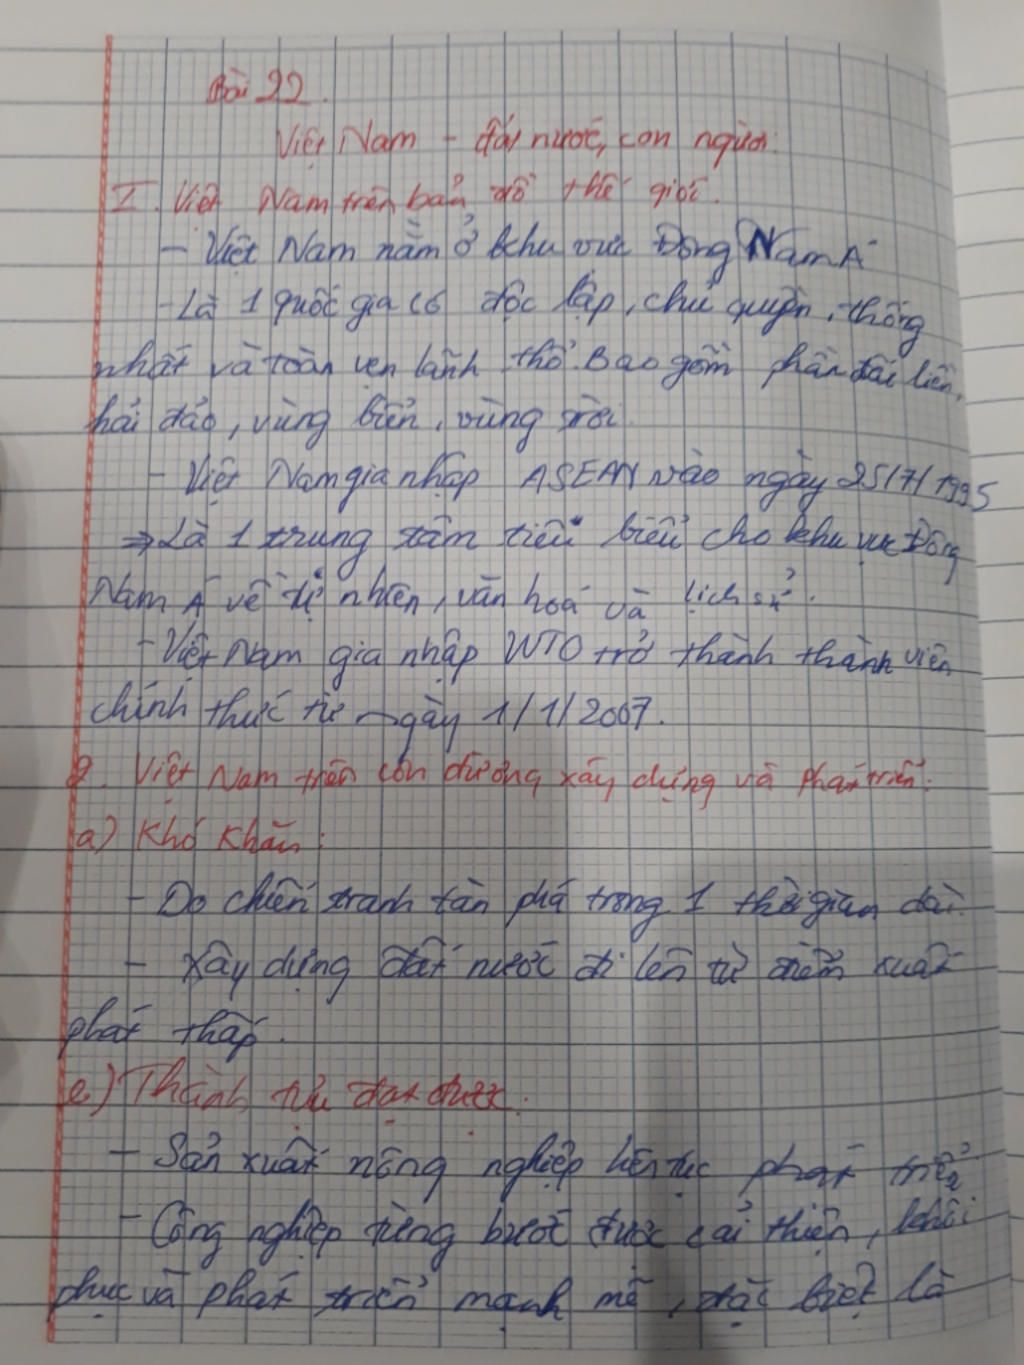 Bài 22.
Việt Nam - đất nước, con người.
I. Việt Nam trên bản đồ thế giới.
- Việt Nam nằm ở khu vực Đông Nam Á
- Là 1 quốc gia có độc lập, chủ quyền, thống
nhất và toàn vẹn lãnh thổ. Bao gồm phần đất liền,
hải đảo, vùng biển, vùng trời.
- Việt Nam gia nhập ASEAN vào ngày 25/7/1995
⇒ Là 1 trung tâm tiêu biểu cho khu vực Đông
Nam Á về tự nhiên, văn hoá và lịch sử.
- Việt Nam gia nhập WTO trở thành thành viên
chính thức từ ngày 1/1/2007.
2. Việt Nam trên con đường xây dựng và phát triển:
a) Khó khăn:
- Do chiến tranh tàn phá trong 1 thời gian dài.
- Xây dựng đất nước đi lên từ điểm xuất
phát thấp.
e) Thành tựu đạt được:
- Sản xuất nông nghiệp liên tục phát triển
- Công nghiệp từng bước được cải thiện, khôi
phục và phát triển mạnh mẽ, đặc biệt là